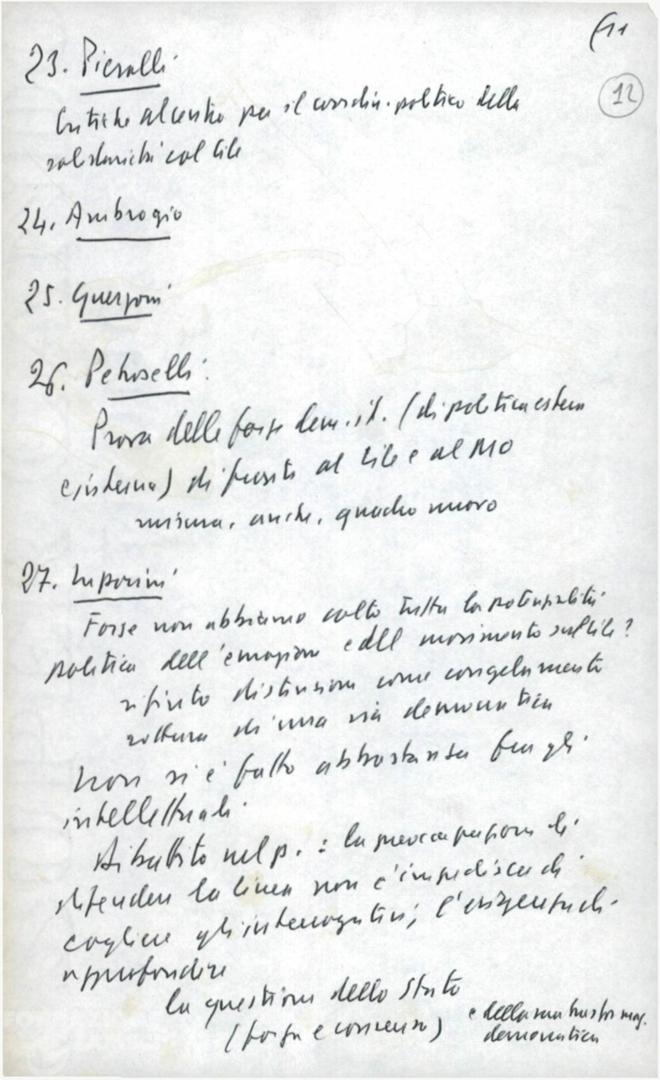 12
23. Pieralli
Critiche al centro per il coordin. politico della
solidarietà col Cile
24. Ambrogio
25. Guerzoni
26. Petroselli:
Prova delle forze dem. it. (di politica estera
e interna) di fronte al Cile e al MO
misura, anche, quadro nuovo
27. Luporini
Forse non abbiamo colto tutta la potenzialità
politica dell'emozione e del movimento sul Cile?
rifiuto distinzione come congelamento
rottura di una via democratica
Non si è fatto abbastanza fra gli
intellettuali
Dibattito nel p.: la preoccupazione di
difendere la linea non c'impedisca di
cogliere gli interrogativi; l'esigenza di
approfondire
la questione dello Stato
(forza e consenso) e della ns. mag.
democratica